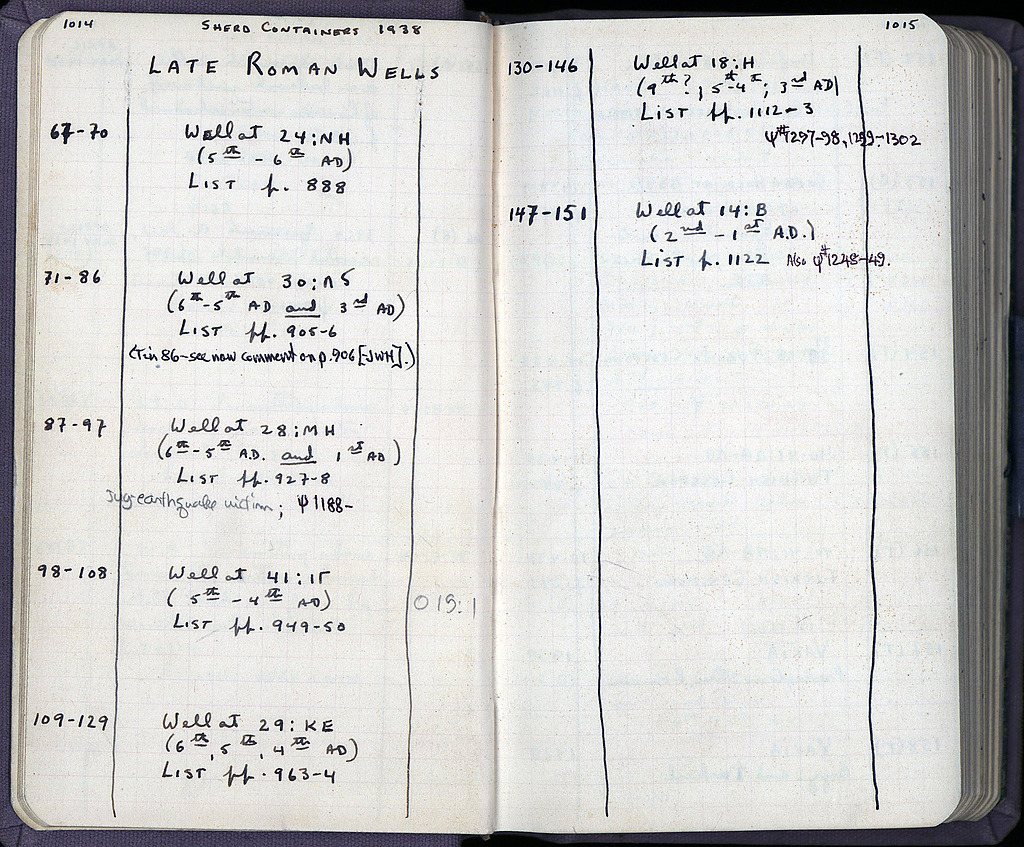 1014
SHERD CONTAINERS 1938
LATE ROMAN WELLS
67-70 Well at 24:NH
(5th - 6th AD)
LIST p. 888
71-86 Well at 30:ΛS
(6th-5th AD and 3rd AD)
LIST pp. 905-6
(Tin 86-see now comment on p. 906 [JWH].)
87-97 Well at 28:MH
(6th-5th A.D. and 1st AD)
LIST pp. 927-8
Jug-earthquake victim; Ψ 1188-
98-108 Well at 41:IΓ
(5th - 4th AD)
LIST pp. 949-50
O 19:1
109-129 Well at 29:KE
(6th, 5th, 4th AD)
LIST pp. 963-4
1015
130-146 Well at 18:H
(9th?, 5th-4th; 3rd AD)
LIST pp. 1112-3
Ψ# 1297-98, 1299-1302
147-151 Well at 14:B
(2nd - 1st A.D.)
LIST p. 1122 Also Ψ# 1248-49.